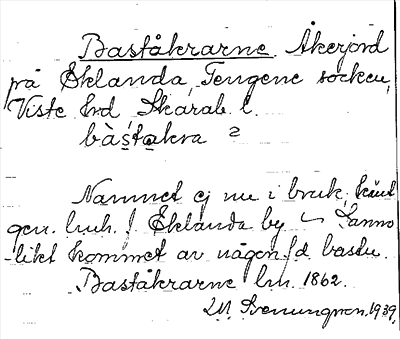 Baståkrarne Åkerjord
på Eklanda, Tengene socken,
Viste hd, Skarab. l.
bàstakra
Namnet ej nu i bruk, känt
gen. lmh. f. Eklanda by Sanno-
likt kommet av någon f.d. bastu.
Baståkrarne lm. 1862.
1939.